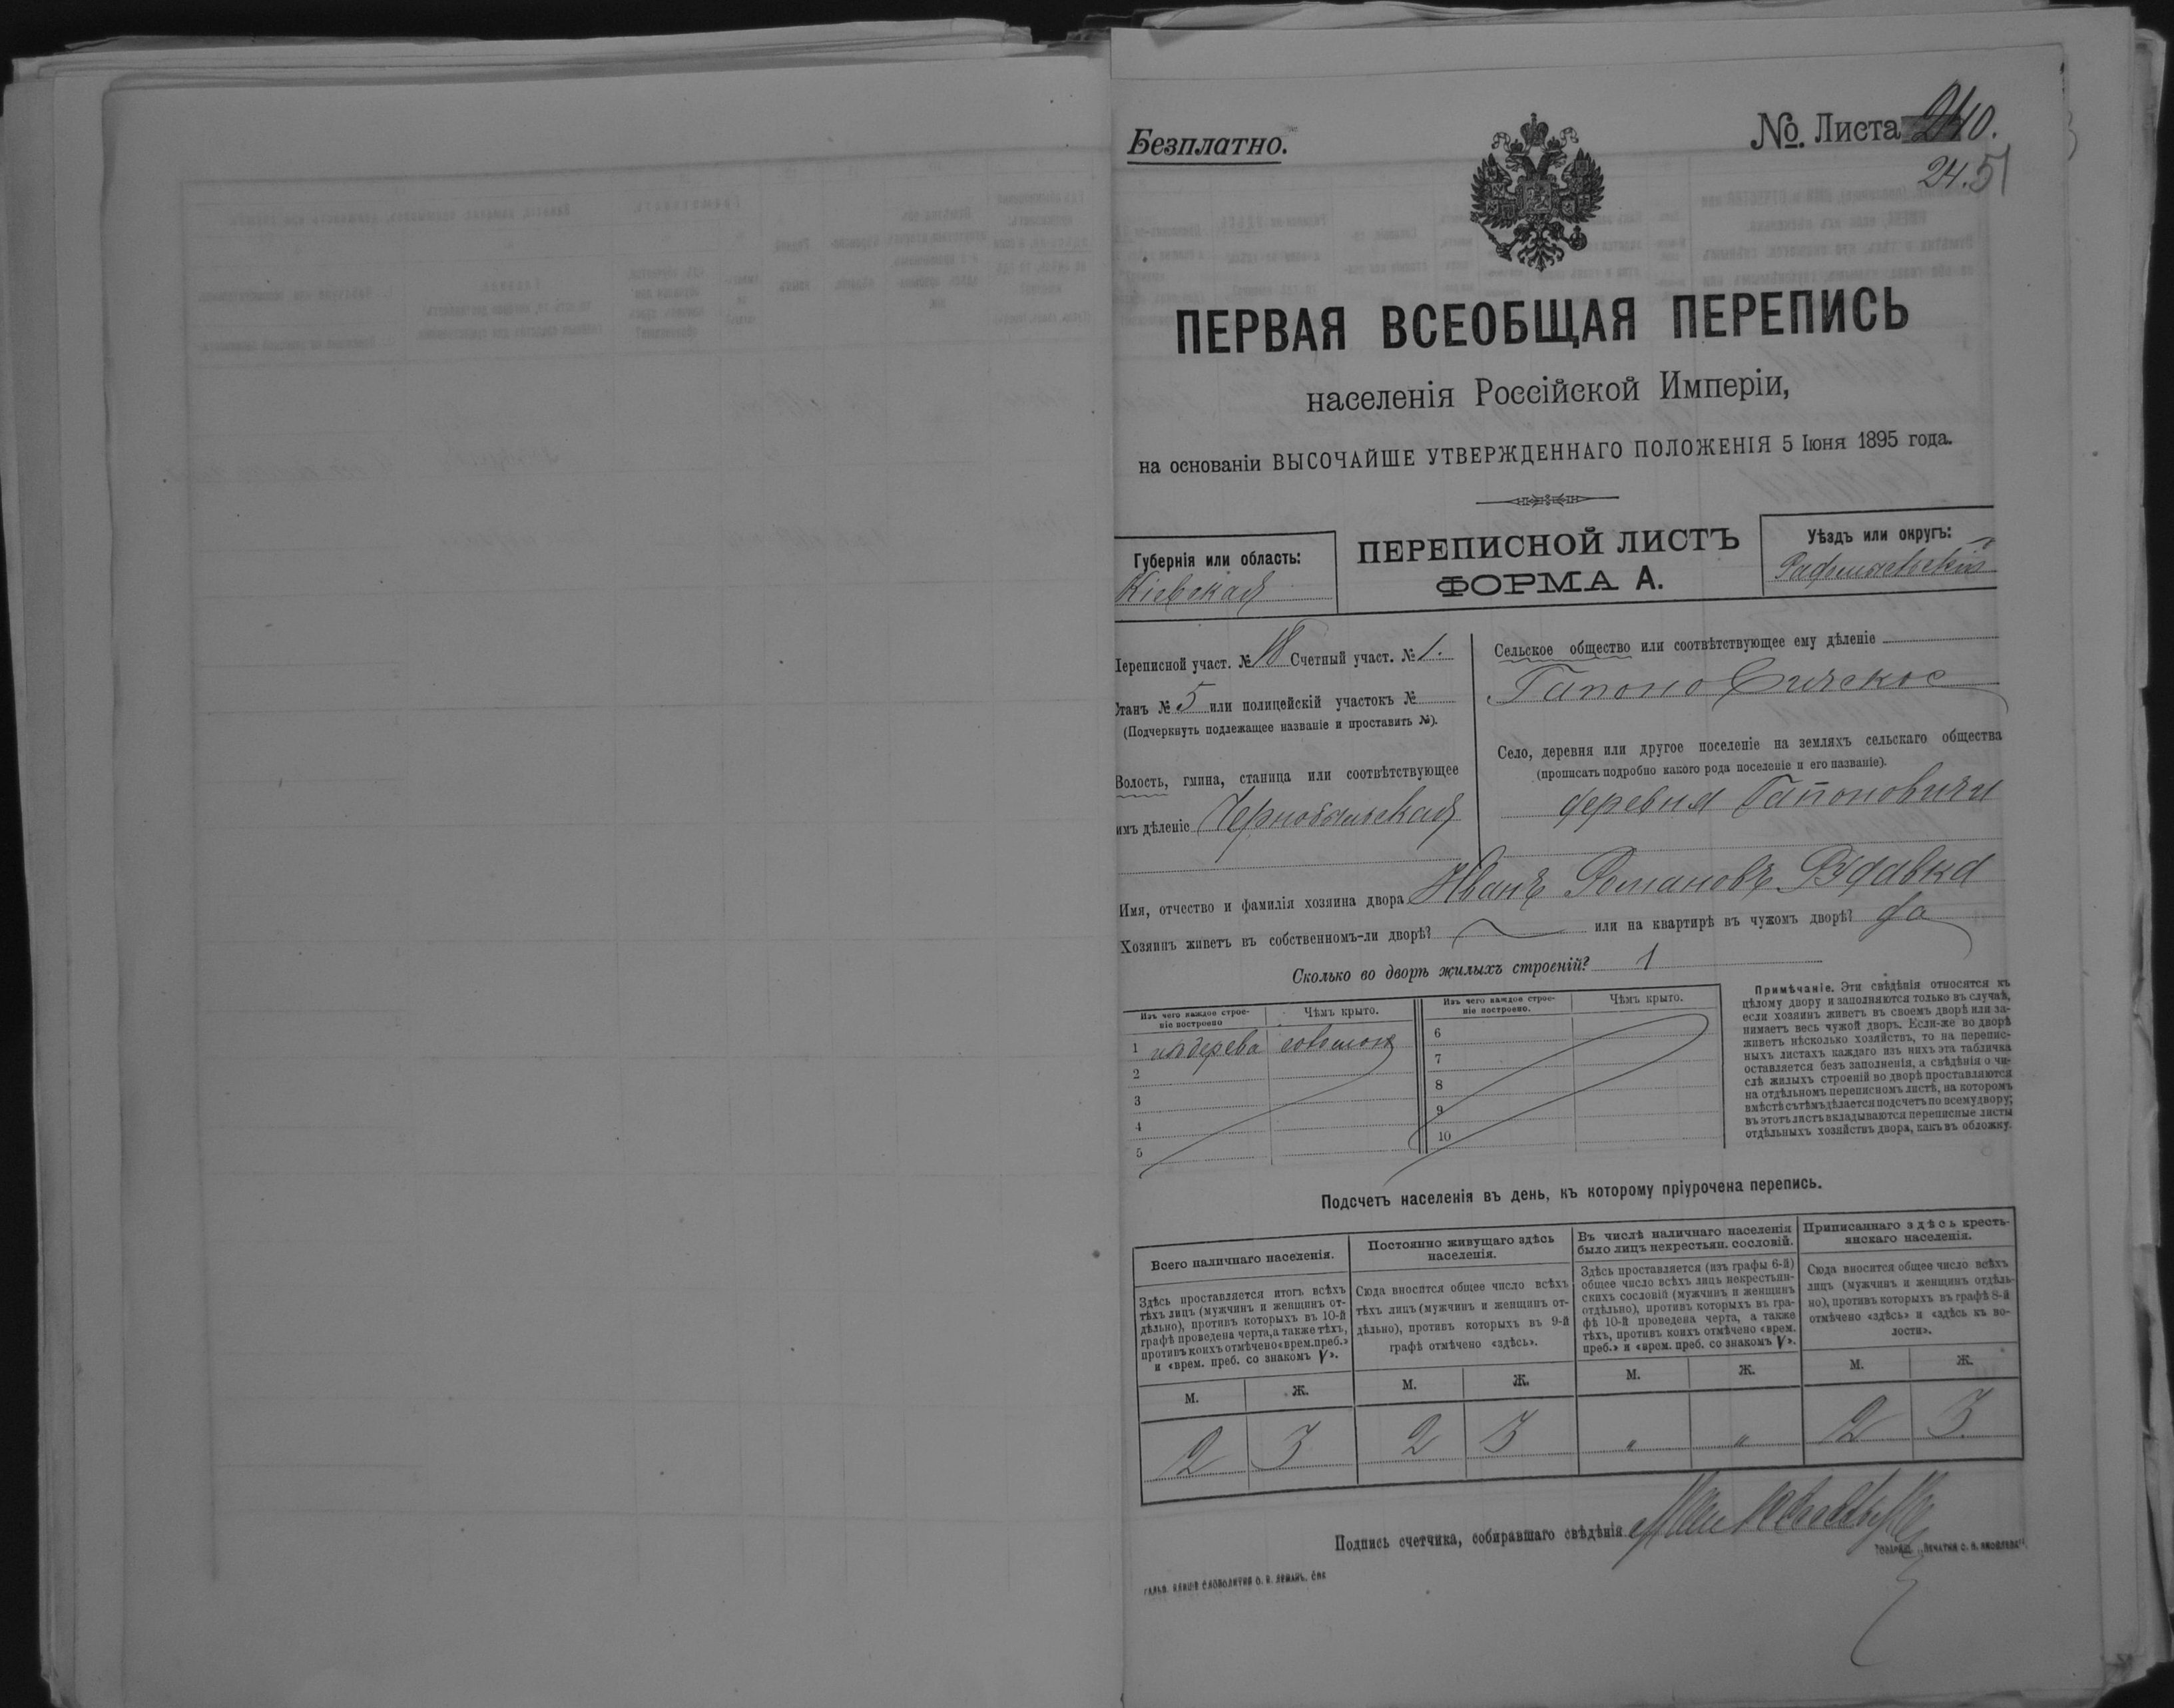 Безплатно.
№. Листа 240.
24.51
ПЕРВАЯ ВСЕОБЩАЯ ПЕРЕПИСЬ
населенія Россійской Имперіи,
на основаніи ВЫСОЧАЙШЕ УТВЕРЖДЕННАГО ПОЛОЖЕНІЯ 5 Іюня 1895 года.
Губернія или область:
Кіевская
ПЕРЕПИСНОЙ ЛИСТЪ
ФОРМА А.
Уѣздъ или округъ:
Радомысльскій
Переписной участ. № 18 Счетный участ. № 1.
Станъ № 5 или полицейскій участокъ №
(Подчеркнуть подлежащее названіе и проставить №).
Волость, гмина, станица или соотвѣтствующее
имъ дѣленіе Чернобыльская
Сельское общество или соотвѣтствующее ему дѣленіе
Гапоновичское
Село, деревня или другое поселеніе на земляхъ сельскаго общества
(прописать подробно какого рода поселеніе и его названіе).
деревня Гапоновичи
Имя, отчество и фамилія хозяина двора Иванъ Романовъ Рудавка
Хозяинъ живетъ въ собственномъ-ли дворѣ? или на квартирѣ въ чужомъ дворѣ? да
Сколько во дворѣ жилыхъ строеній? 1
Изъ чего каждое строе-
ніе построено
Чѣмъ крыто.
1 изъ дерева соломою
2
3
4
5
Изъ чего каждое строе-
ніе построено.
Чѣмъ крыто.
6
7
8
9
10
Примѣчаніе. Эти свѣдѣнія относятся къ
цѣлому двору и заполняются только въ случаѣ,
если хозяинъ живетъ въ своемъ дворѣ или за-
нимаетъ весь чужой дворъ. Если-же во дворѣ
живетъ нѣсколько хозяйствъ, то на перепис-
ныхъ листахъ каждаго изъ нихъ эта табличка
оставляется безъ заполненія, а свѣдѣнія о чи-
слѣ жилыхъ строеній во дворѣ проставляются
на отдѣльномъ переписномъ листѣ, на которомъ
вмѣстѣ съ тѣмъ дѣлается подсчетъ по всему двору;
въ этотъ листъ вкладываются переписные листы
отдѣльныхъ хозяйствъ двора, какъ въ обложку.
Подсчетъ населенія въ день, къ которому пріурочена перепись.
Всего наличнаго населенія.
Здѣсь проставляется итогъ всѣхъ
тѣхъ лицъ (мужчинъ и женщинъ от-
дѣльно), противъ которыхъ въ 10-й
графѣ проведена черта, а также тѣхъ,
противъ коихъ отмѣчено «врем. преб.»
и «врем. преб. со знакомъ V».
М. Ж.
2 3
Постоянно живущаго здѣсь
населенія.
Сюда вносится общее число всѣхъ
тѣхъ лицъ (мужчинъ и женщинъ от-
дѣльно), противъ которыхъ въ 9-й
графѣ отмѣчено «здѣсь».
М. Ж.
2 3
Въ числѣ наличнаго населенія
было лицъ некрестьян. сословій.
Здѣсь проставляется (изъ графы 6-й)
общее число всѣхъ лицъ некрестьян-
скихъ сословій (мужчинъ и женщинъ
отдѣльно), противъ которыхъ въ гра-
фѣ 10-й проведена черта, а также
тѣхъ, противъ коихъ отмѣчено «врем.
преб.» и «врем. преб. со знакомъ V».
М. Ж.
" "
Приписаннаго здѣсь кресть-
янскаго населенія.
Сюда вносится общее число всѣхъ
лицъ (мужчинъ и женщинъ отдѣль-
но), противъ которыхъ въ графѣ 8-й
отмѣчено «здѣсь» и «здѣсь къ во-
лости».
М. Ж.
2 3.
Подпись счетчика, собиравшаго свѣдѣнія
ГАЛЬВ. КЛИШЕ СЛОВОЛИТНИ О. И. ЛЕМАНЪ, СПБ